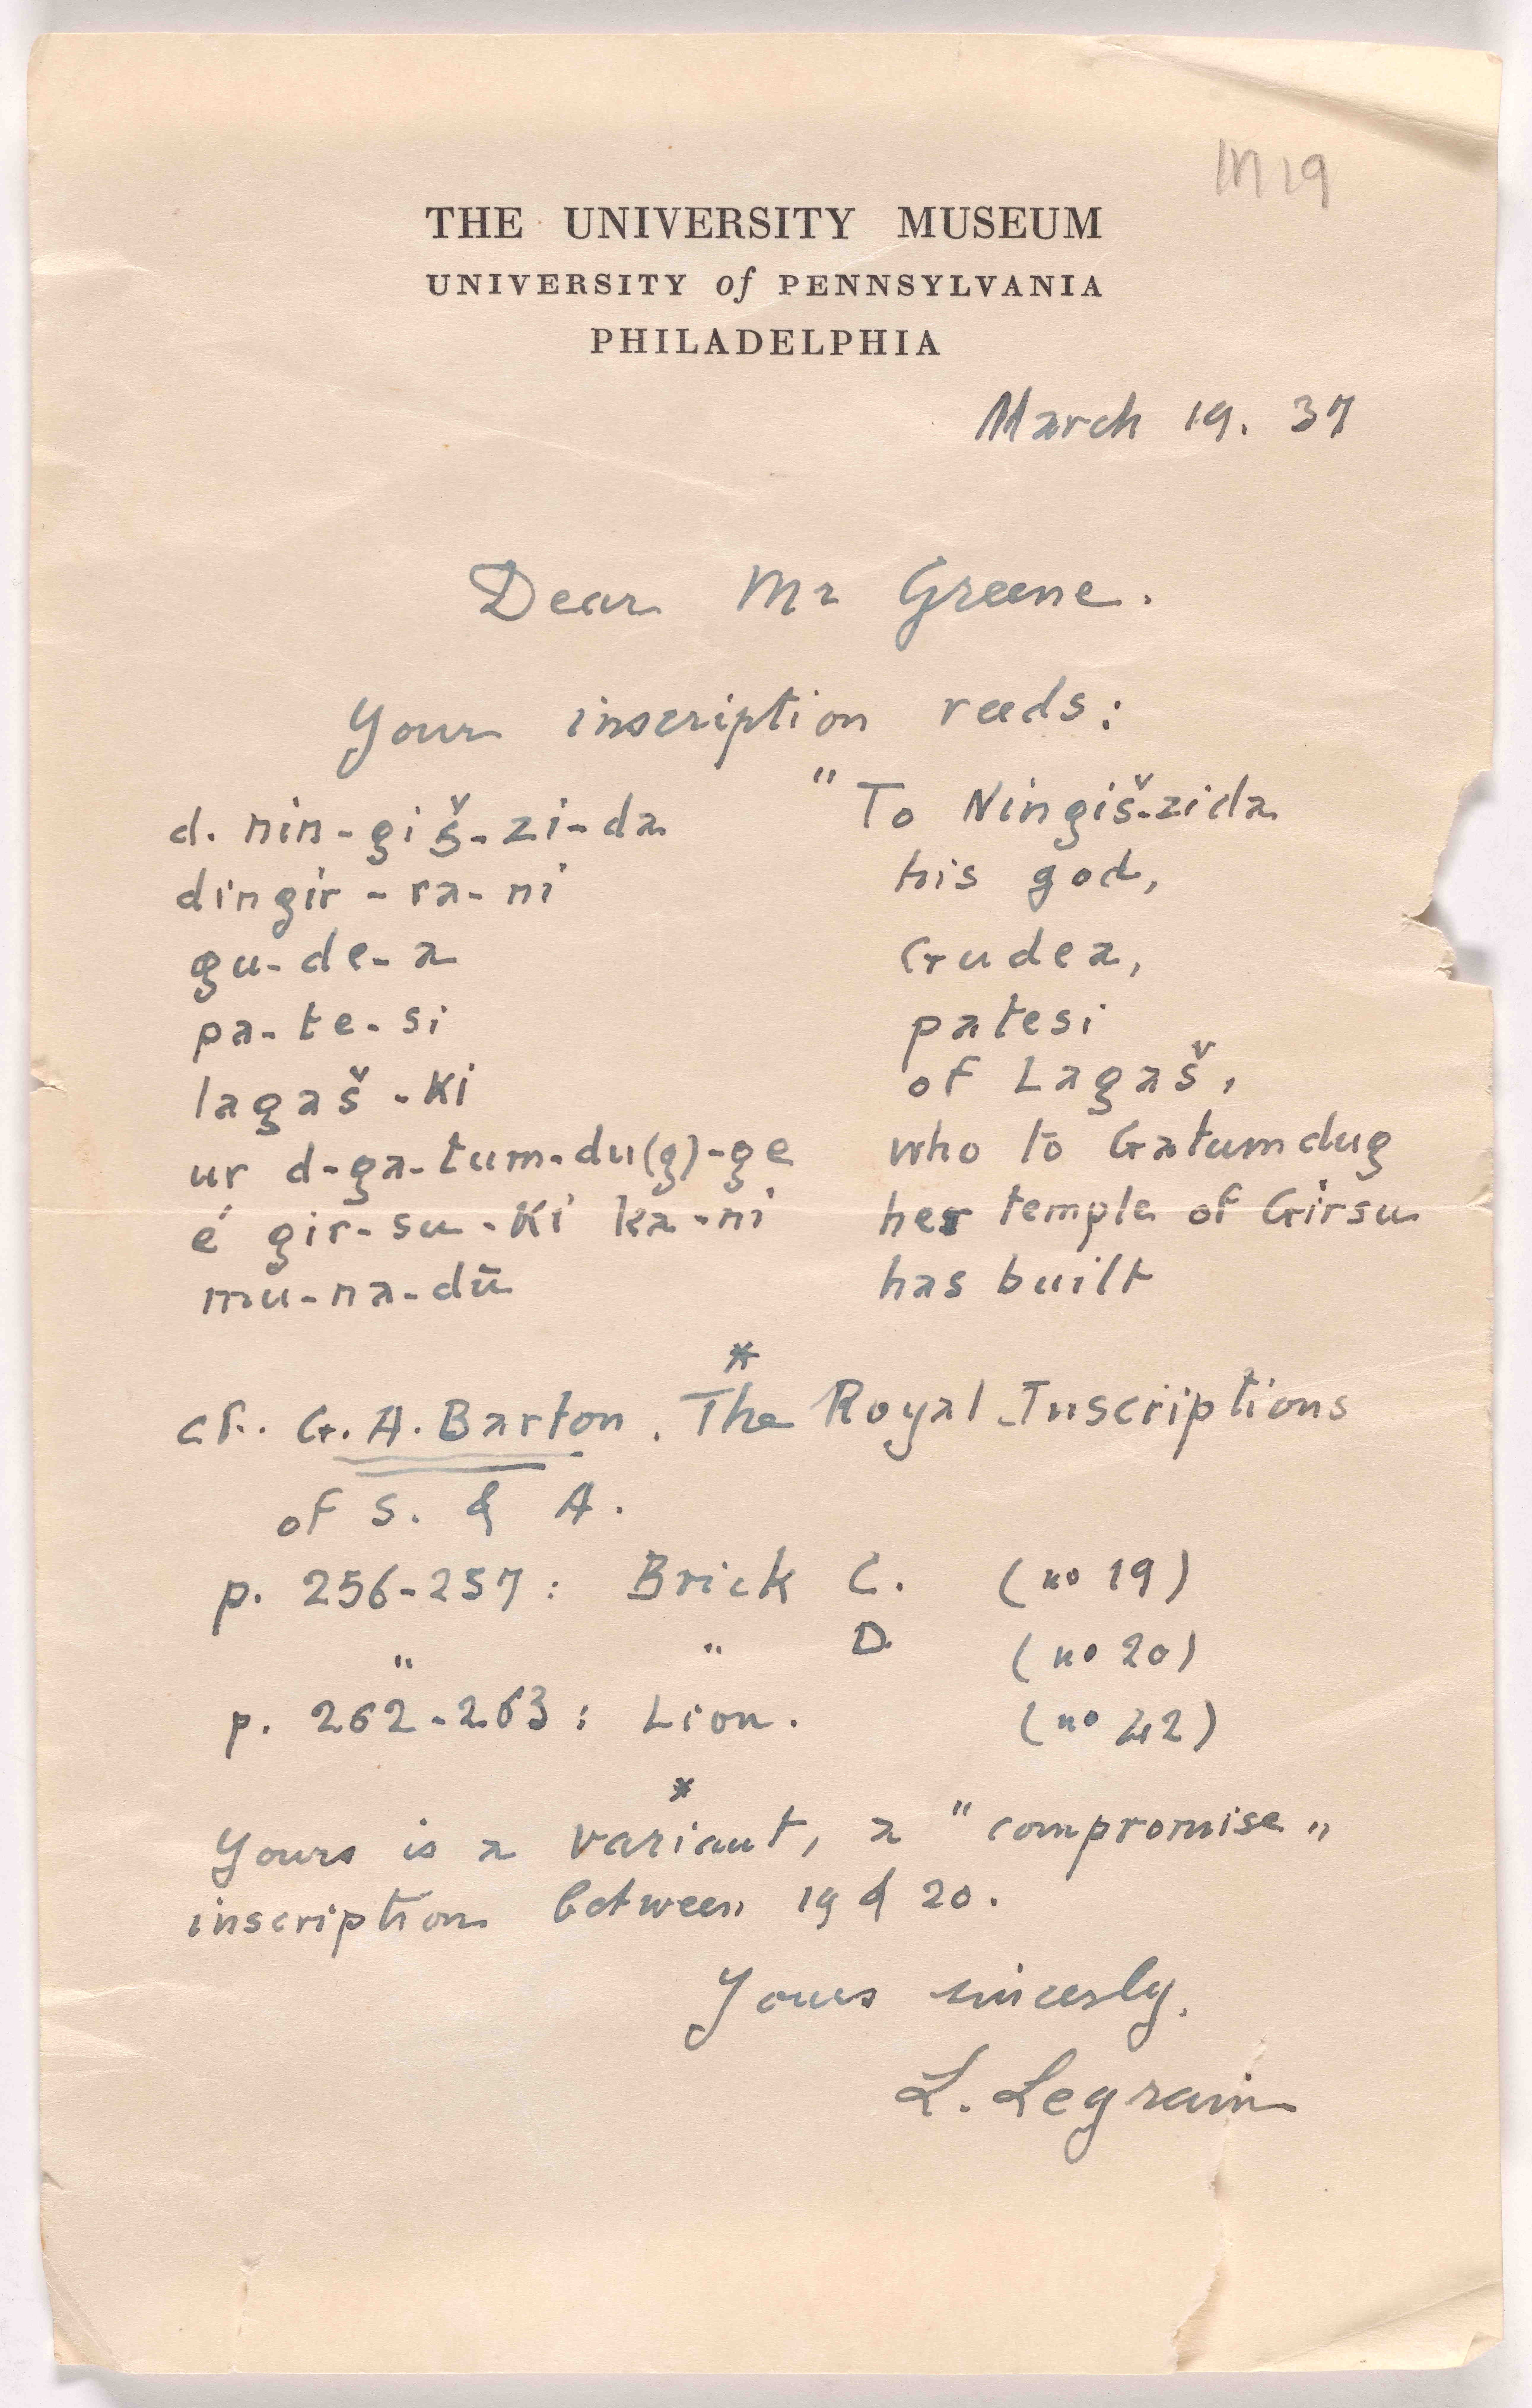 M 19
THE UNIVERSITY MUSEUM
UNIVERSITY of PENNSYLVANIA
PHILADELPHIA
March 19. 37
Dear Mr Greene.
Your inscription reeds:
d. nin-giš-zi-da "To Ningiš-zida
dingir-ra-ni his god,
gu-de-a Gudea,
pa-te-si patesi
lagaš-ki of Lagaš,
ur d-ga-tum-du(g)-ge who to Gatumdug
é gir-su-ki ka-ni her temple of Girsu
mu-na-dū has built
*
cf. G.A. Barton. The Royal Inscriptions
of S. & A.
p. 256-257: Brick C. (no 19)
" " D. (no 20)
p. 262-263: Lion. (no 42)
*
Yours is a variant, a "compromise„
inscription between 19 & 20.
Yours sincerly.
L. Legrain